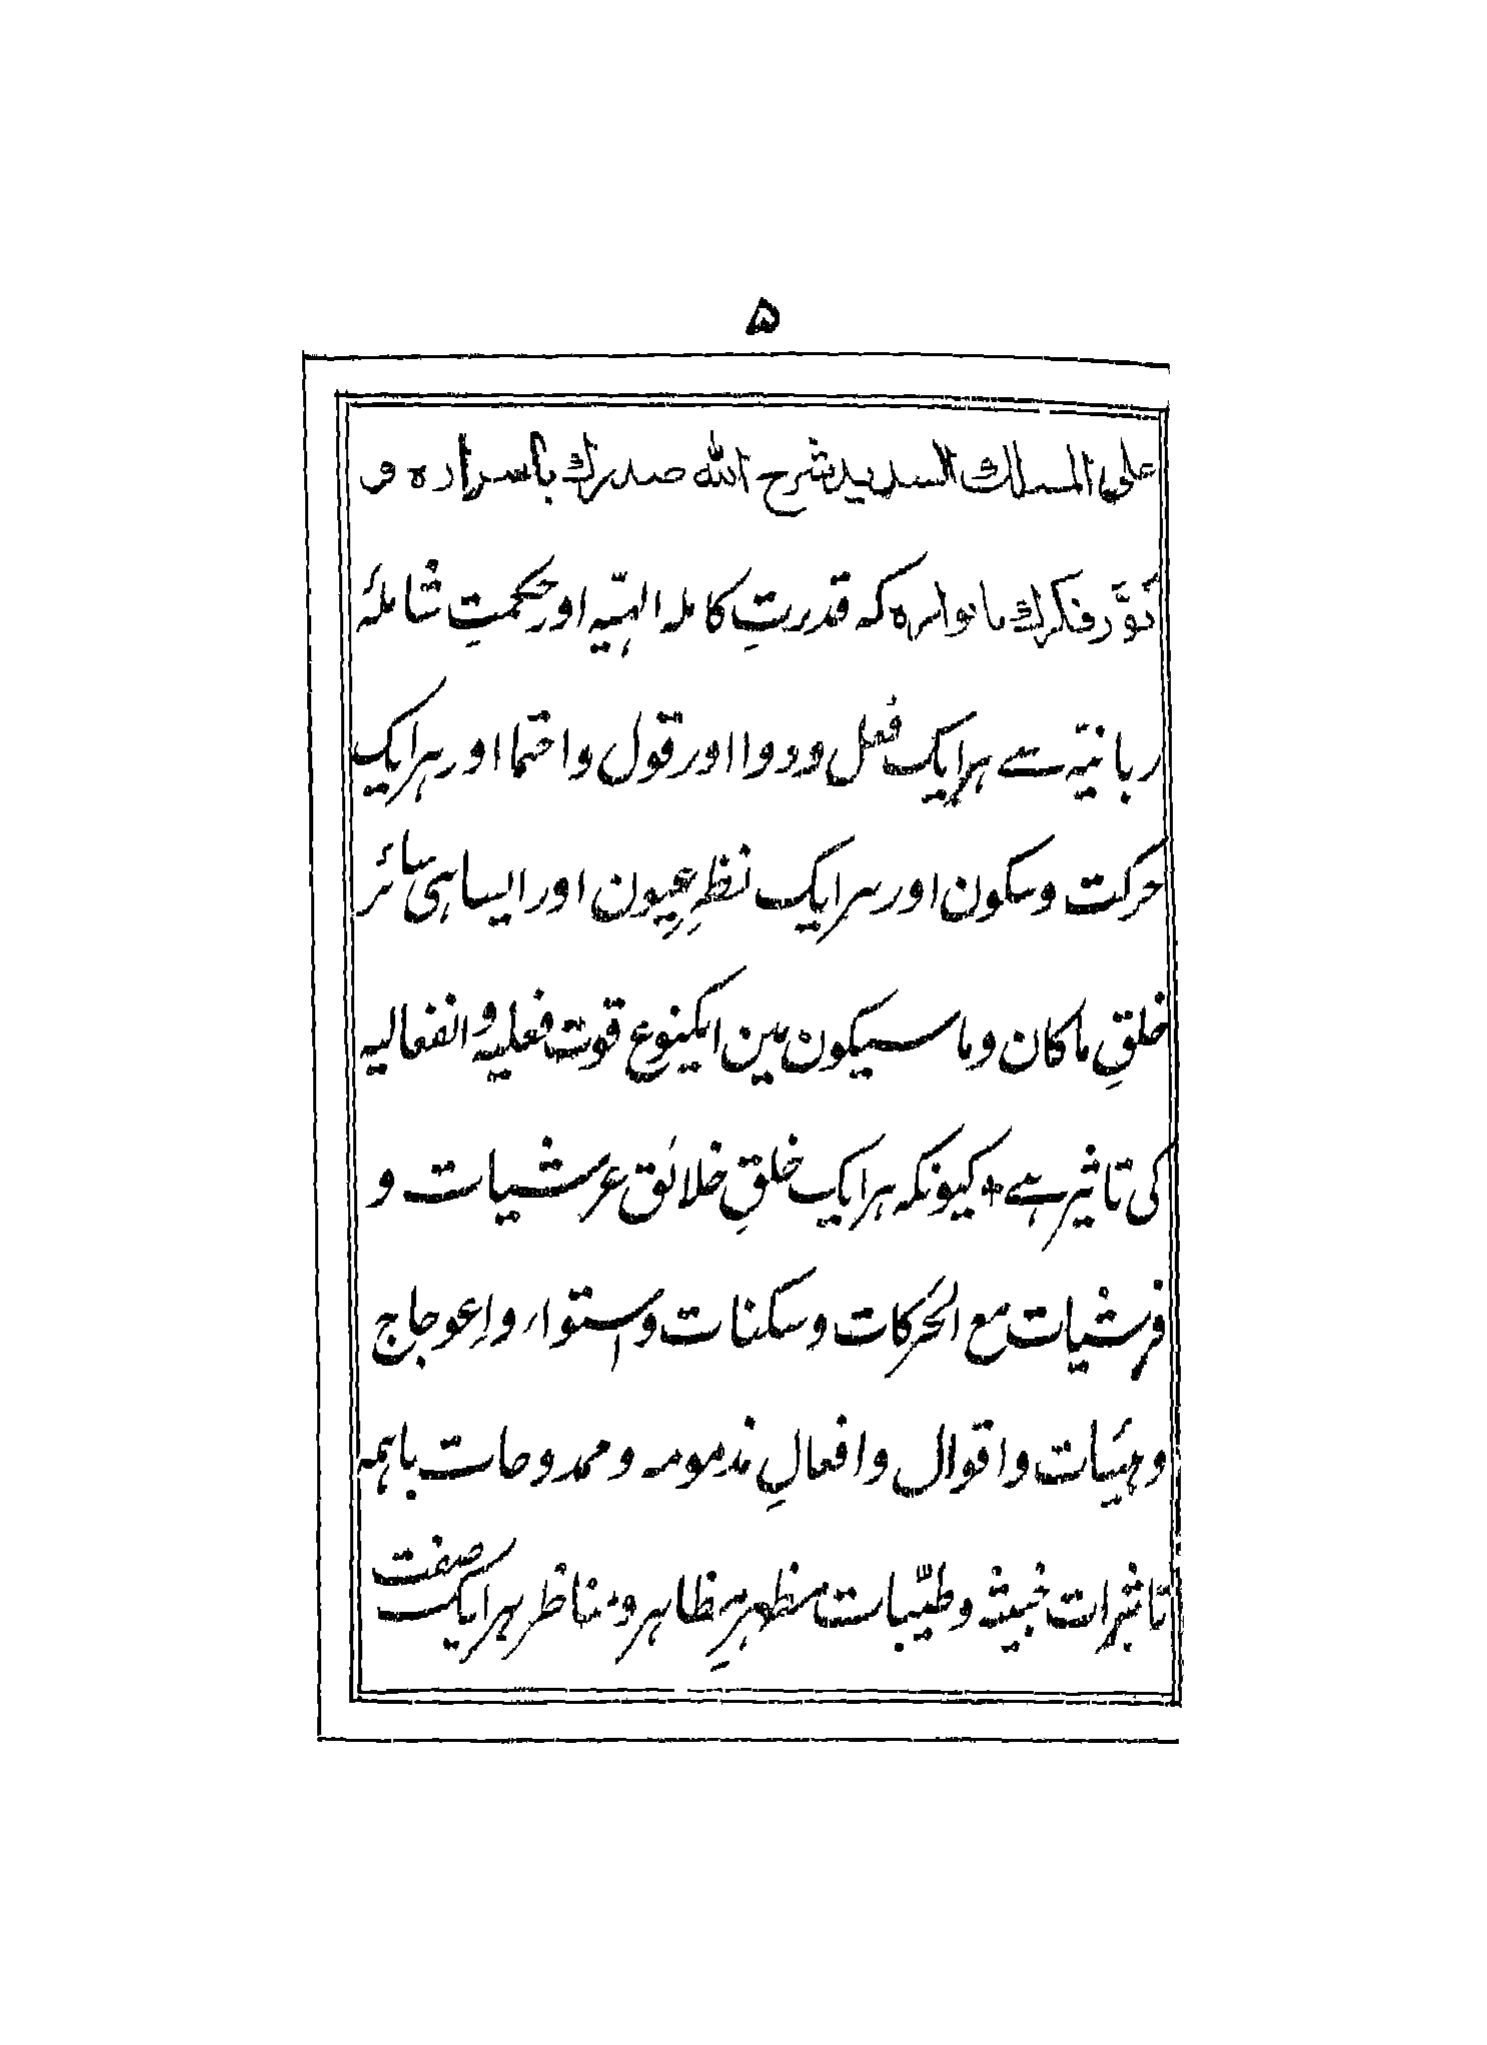 ۵
على المسلك السديد شرح الله صدرك باسراره و
نَوَّر فكرك بانواره کہ قدرتِ کاملہ الہیّہ اور حکمتِ شاملۂ
ربانیّہ سے ہر ایک فعل و دوا اور قول و احتما اور ہر ایک
حرکت و سکون اور ہر ایک نظرِ عیون اور ایسا ہی سائر
خلقِ ما کان و ما سیکون مین ایکنوع قوت فعلیہ و انفعالیہ
کی تاثیر ہے + کیونکہ ہر ایک خلقِ خلائق عرشیات و
فرشیات مع الحَرکات و سکنات و استواء و اِعوجاج
و ہیئات و اقوال و افعالِ مذمومہ و ممدوحات باہمہ
تاثیرات خبیثہ و طیّبات مظہرِ مظاہر و مناظر ہر ایک صفت